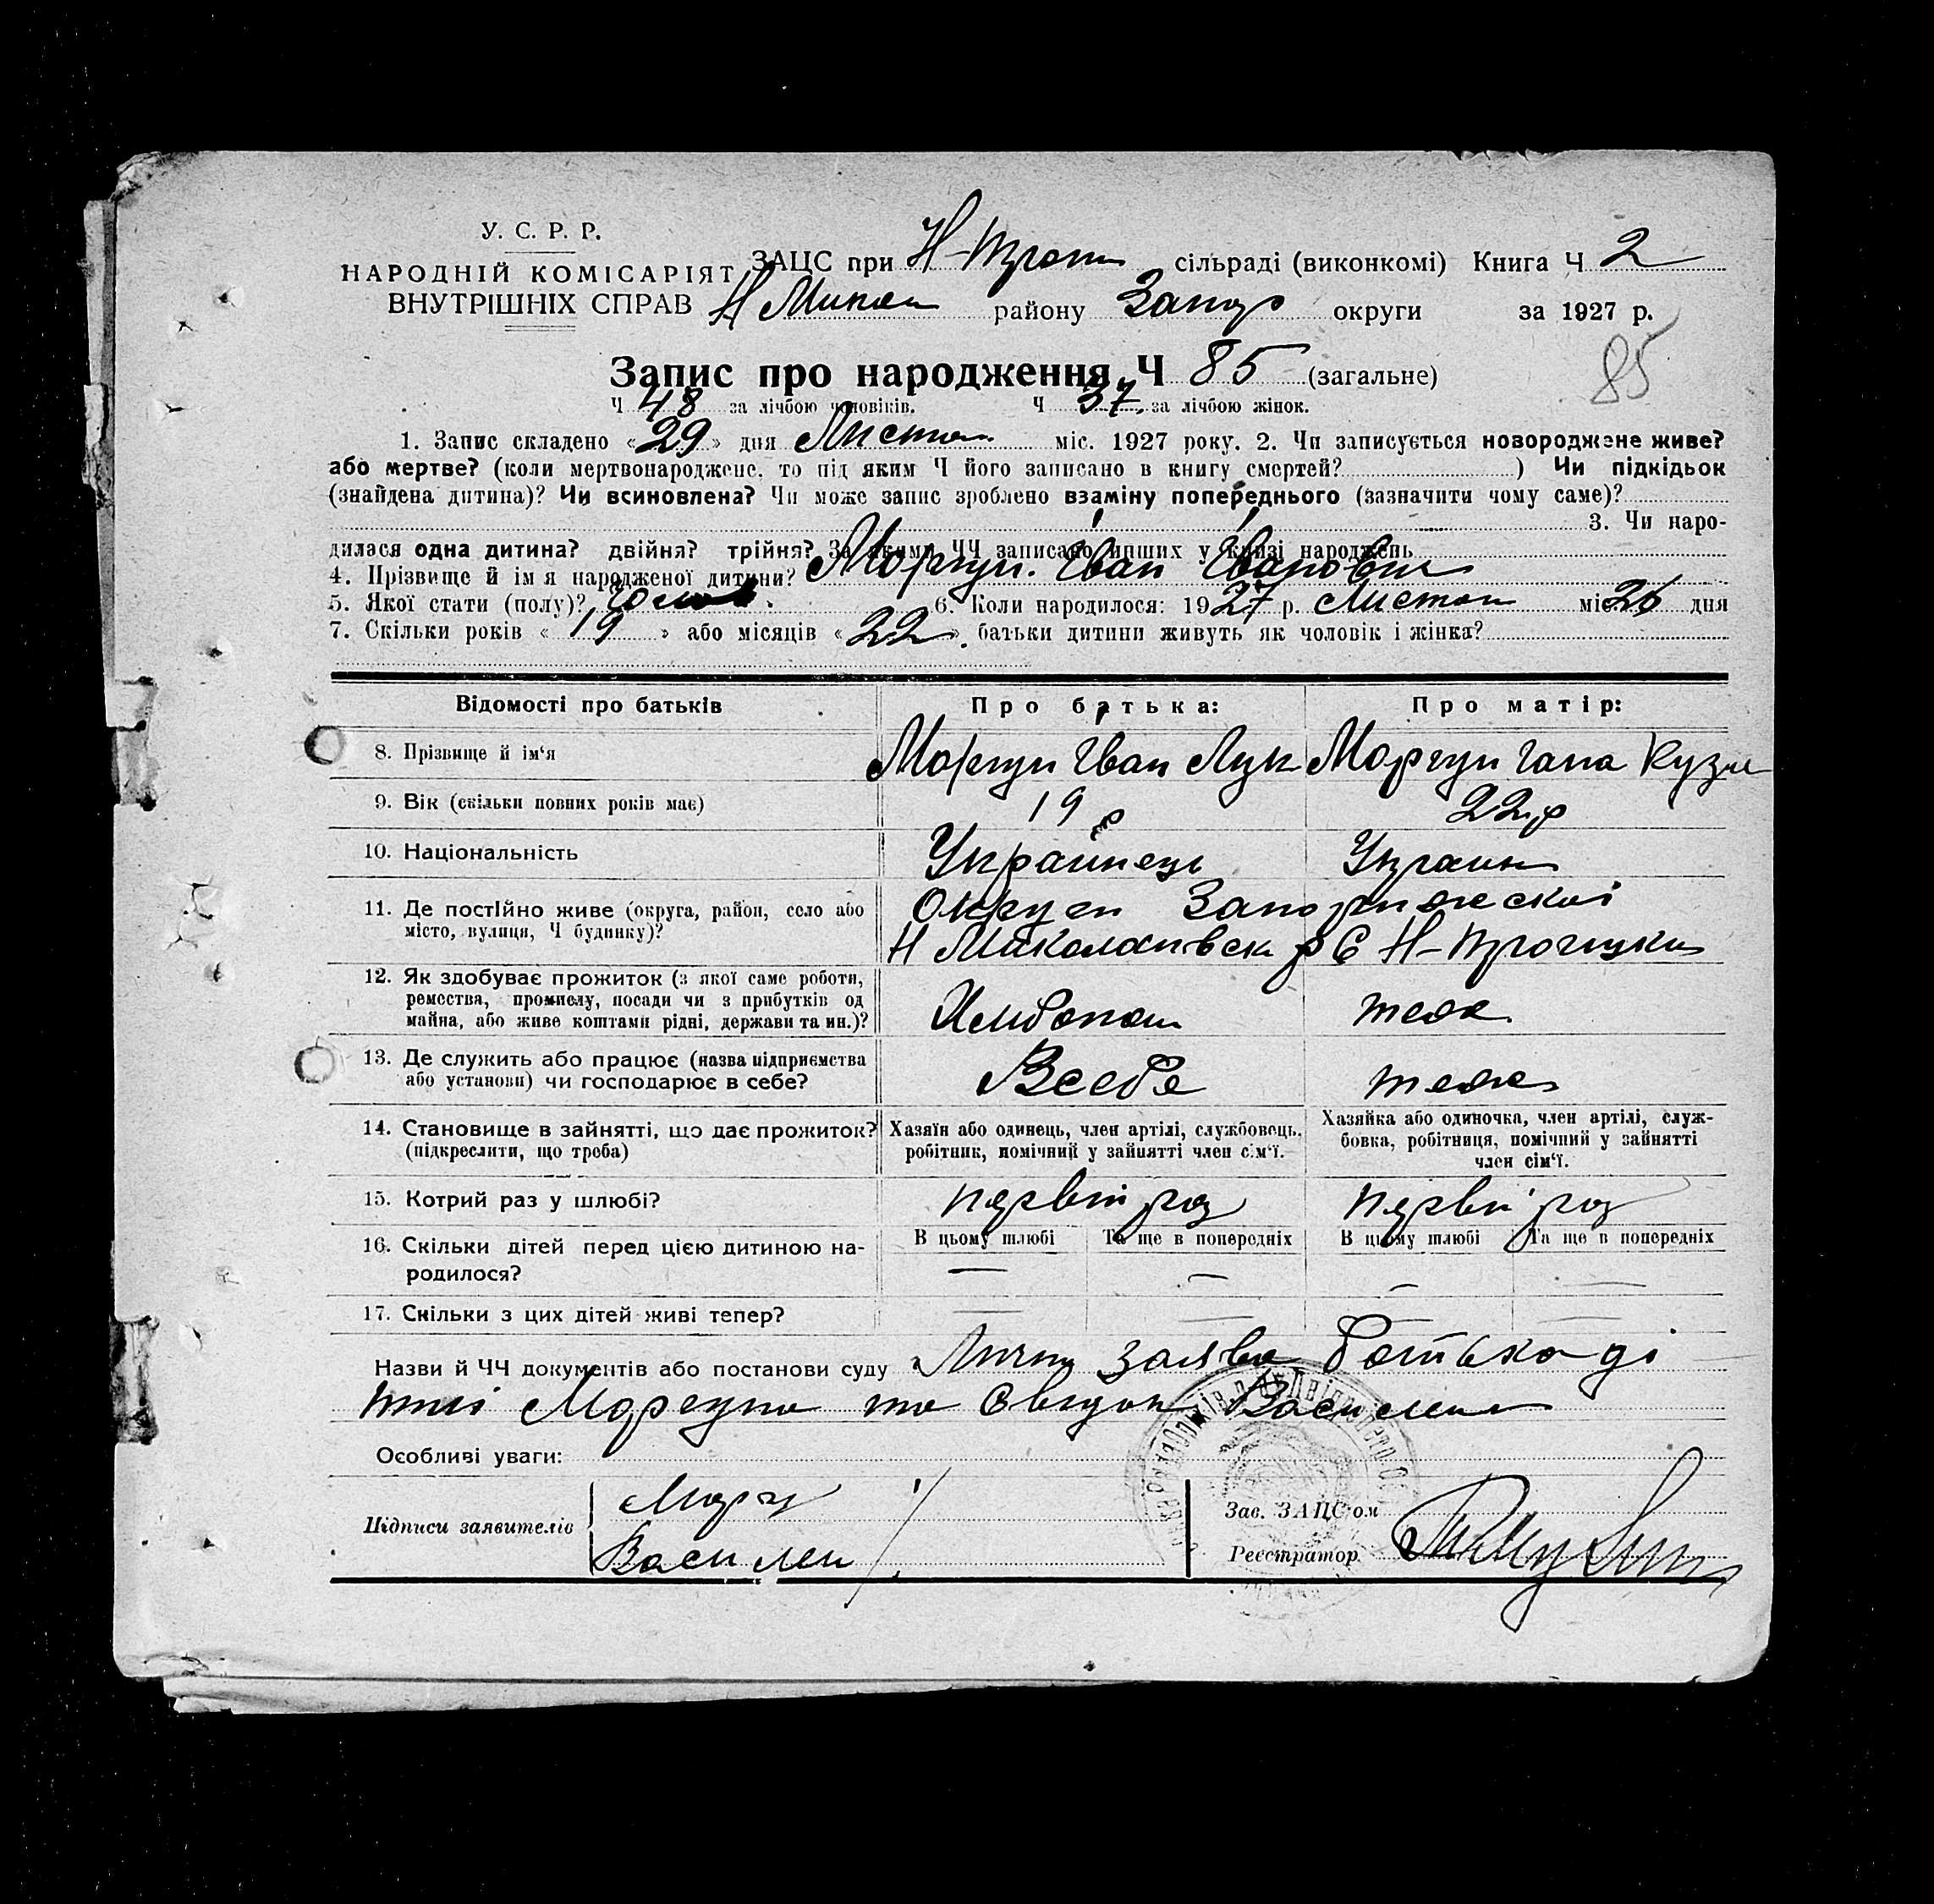 У. С. Р. Р.
НАРОДНІЙ КОМІСАРІЯТ
ВНУТРІШНІХ СПРАВ
ЗАЦС при сільраді (виконкомі) Книга Ч 2
району Запор округи за 1927 р.
85
Запис про народження Ч 85 (загальне)
Ч 48 за лічбою чоловіків. Ч 37 за лічбою жінок.
1. Запис складено « 29 » дня Листоп міс. 1927 року. 2. Чи записується новороджене живе?
або мертве? (коли мертвонароджене, то під яким Ч його записано в книгу смертей? ) Чи підкідьок
(знайдена дитина)? Чи всиновлена? Чи може запис зроблено взаміну попереднього (зазначити чому саме)?
3. Чи наро-
дилася одна дитина? двійня? трійня? За якими ЧЧ записано инших у книзі народжень
4. Прізвище й ім'я народженої дитини? Моргун Іван Іванович
5. Якої стати (полу)? 6. Коли народилося: 1927 р. Листоп міс. 26 дня
7. Скільки років « 19 » або місяців « 22 » батьки дитини живуть як чоловік і жінка?
Відомості про батьків Про батька: Про матір:
8. Прізвище й ім'я Моргун Іван Лук Моргун Гана Кузм
9. Вік (скільки повних років має) 19 р 22 р
10. Національність Українець Украин
11. Де постійно живе (округа, район, село або Округи Запорижской
місто, вулиця, Ч будинку)? Н Миколаивск р С
12. Як здобуває прожиток (з якої саме роботи,
ремества, промислу, посади чи з прибутків од
майна, або живе коштами рідні, держави та ин.)? Хлібопаш тоже
13. Де служить або працює (назва підприємства
або установи) чи господарює в себе? Всебе тоже
14. Становище в зайнятті, що дає прожиток? Хазяїн або одинець, член артілі, службовець, Хазяйка або одиночка, член артілі, служ-
(підкреслити, що треба) робітник, помічний у зайнятті член сім'ї. бовка, робітниця, помічний у зайнятті
член сім'ї.
15. Котрий раз у шлюбі? первий раз первий раз
16. Скільки дітей перед цією дитиною на- В цьому шлюбі Та ще в попередніх В цьому шлюбі Та ще в попередніх
родилося? — — — —
17. Скільки з цих дітей живі тепер? — —
Назви й ЧЧ документів або постанови суду заява батька
Моргуна та Василен
Особливі уваги:
Підписи заявителів Моргу Зав. ЗАЦС'ом
Василен Реєстратор